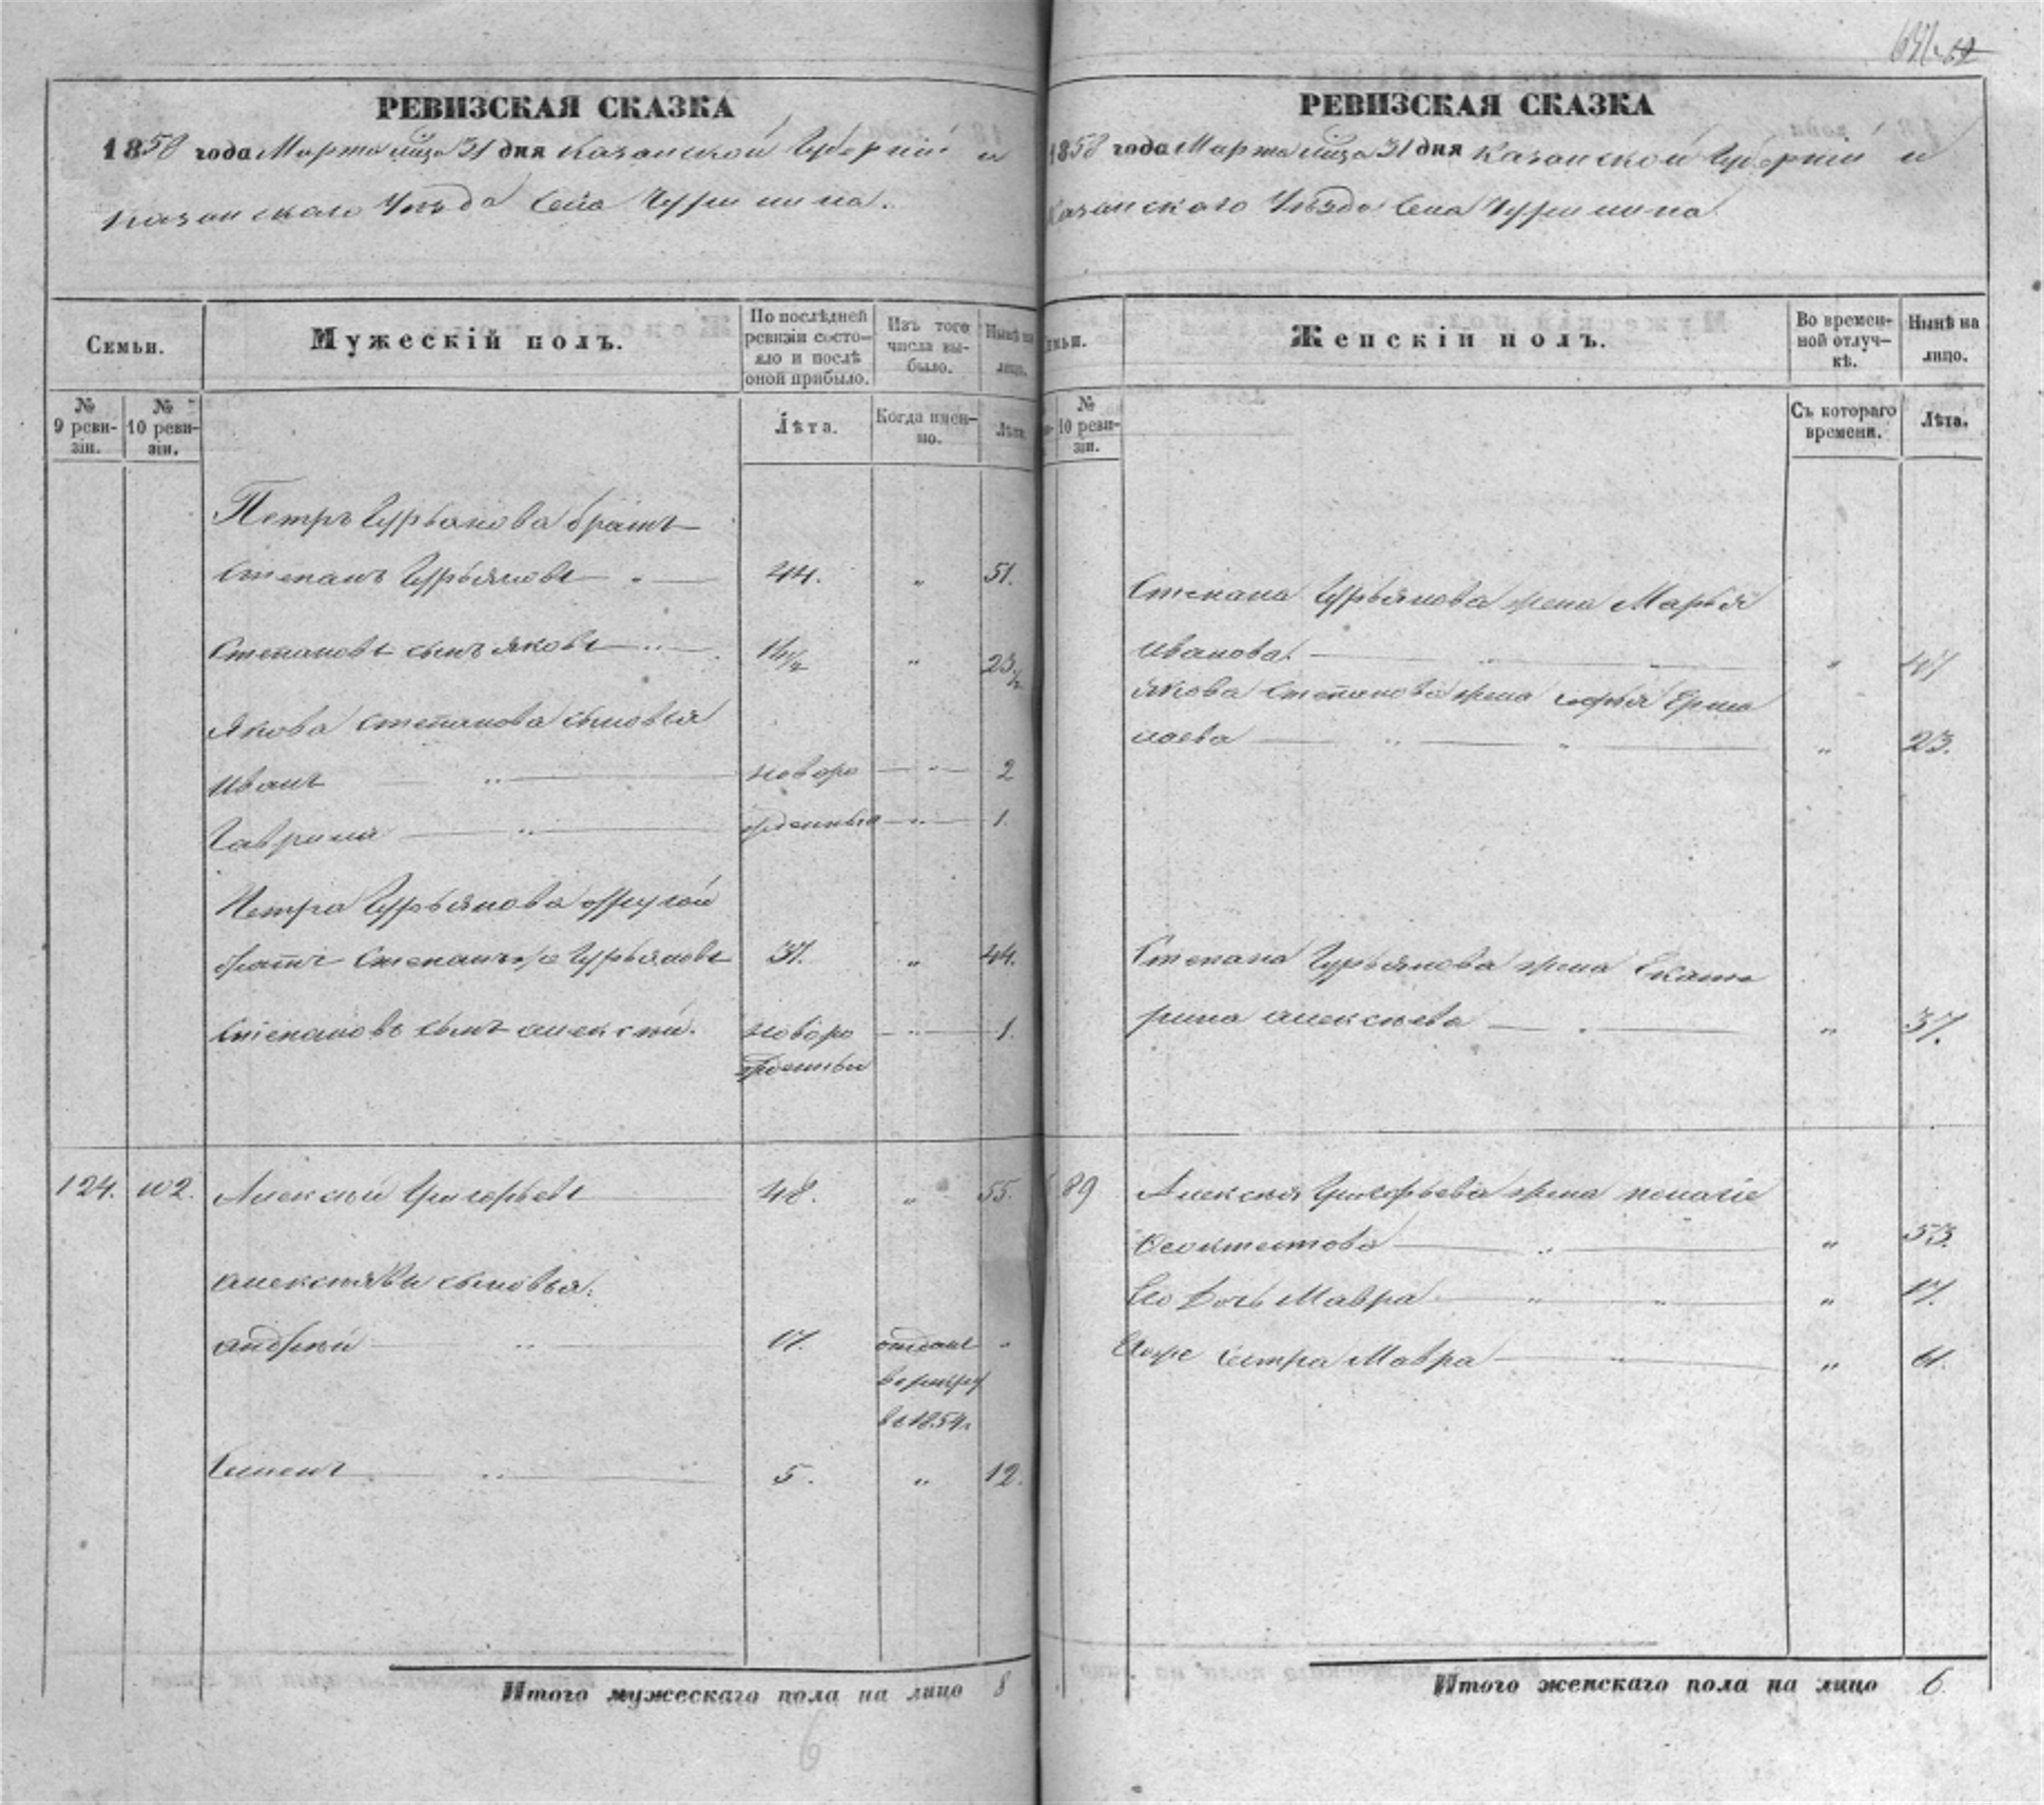 РЕВИЗСКАЯ СКАЗКА
1858 года Марта м̃ца 31 дня Казанской Губерніи и
Казанскаго Уѣзда Села
Семьи.
Мужескій полъ.
По послѣдней ревизіи состо-
яло и послѣ
оной прибыло.
Изъ того
числа вы-
было.
Нынѣ на
лицо.
№
9 реви-
зіи.
№
10 реви-
зіи.
Лѣта.
Когда имен-
но.
Лѣта.
Петръ Гурьянова братъ
Степанъ Гурьяновъ 44. " 51.
Степановъ сынъ Яковъ 14½ " 23½
Якова Степанова сыновья
Иванъ " новоро " 2
Гаврила " жденныя " 1.
Петра Гурьянова другой
братъ Степанъ же Гурьяновъ 37. " 44.
Степановъ сынъ Алексѣй. новоро " 1.
жденный
124. 102. Алексѣй Григорьевъ 48. " 55.
Алексѣявы сыновья:
Андрей " 17. отданъ "
в рекру
въ 1854.
Семенъ " 5. " 12.
Итого мужескаго пола на лицо 8
6
РЕВИЗСКАЯ СКАЗКА
1858 года Марта м̃ца 31 дня Казанской Губерніи и
Казанскаго Уѣзда Села
Женскій полъ.
Во времен-
ной отлуч-
кѣ.
Нынѣ на
лицо.
№
10 реви-
зіи.
Съ котораго
времени.
Лѣта.
Степана Гурьянова жена Марья
Иванова. " 47
Якова Степанова жена Софья Ерми
лаева " 23.
Степана Гурьянова жена Екате
рина Алексѣева " 37.
89 Алексѣя Григорьева жена
Феоктистова " 53.
Его дочь Мавра " 17.
Его же сестра Мавра " 61.
Итого женскаго пола на лицо 6.